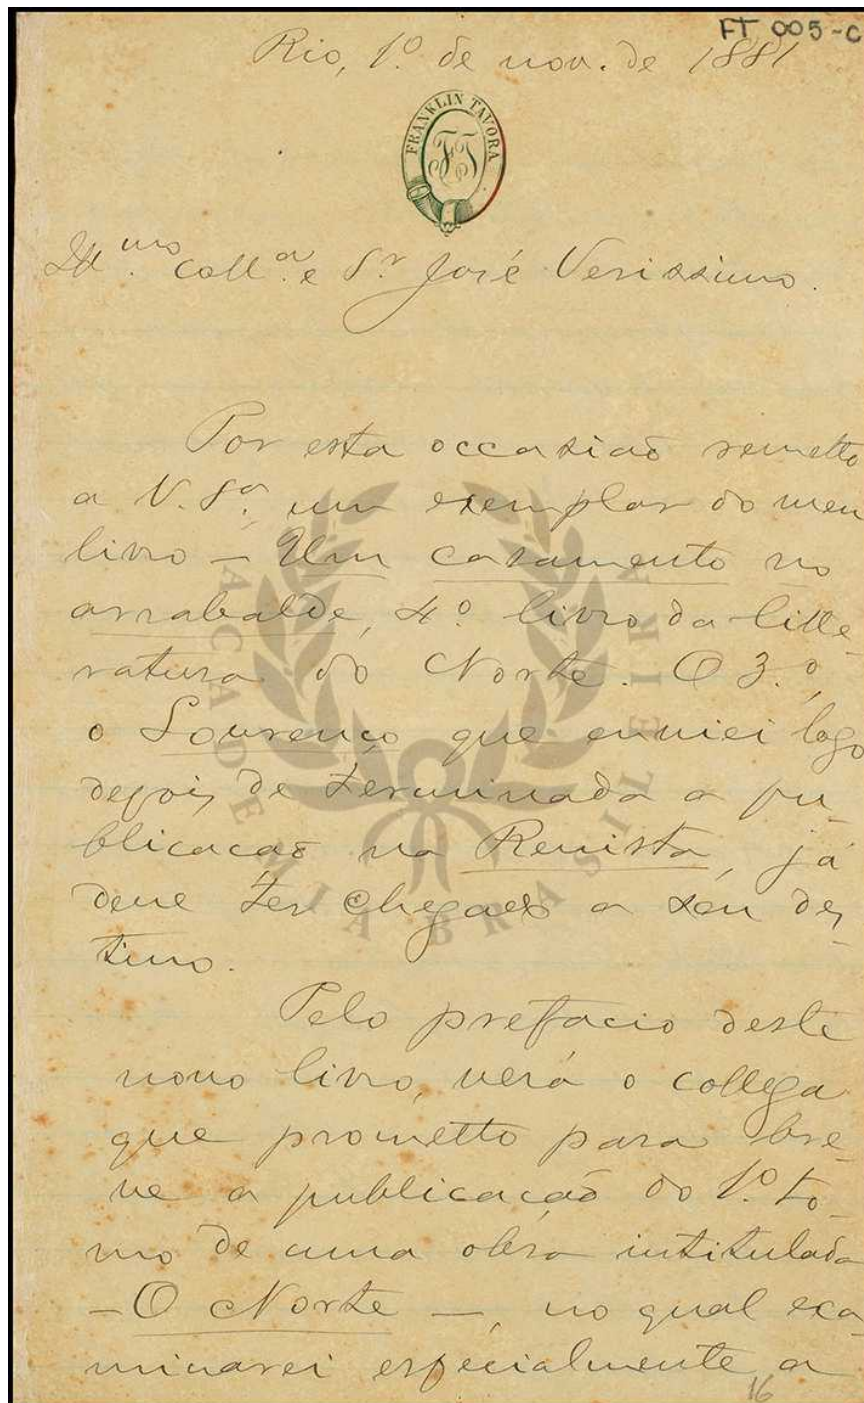 FT 005-C
Rio, 1º. de nov. de 1881
FRANKLIN TAVORA
FT
Ill.mo coll.a e S.r José Verissimo.
Por esta occasião remetto
a V. S.a, um exemplar do meu
livro – Um casamento no
arrabalde, 4º. livro da litte-
ratura do Norte. O 3.º,
o Lourenço que enviei logo
depois de terminada a pu-
blicacão na Revista, já
deve ter chegado a seu des-
tino.
Pelo prefacio deste
novo livro, verá o collega
que prometto para bre-
ve a publicacão do 1º. to-
mo de uma obra intitulada
– O Norte –, no qual exa-
minarei especialmente a
16
ACADEMIA BRASILEIRA